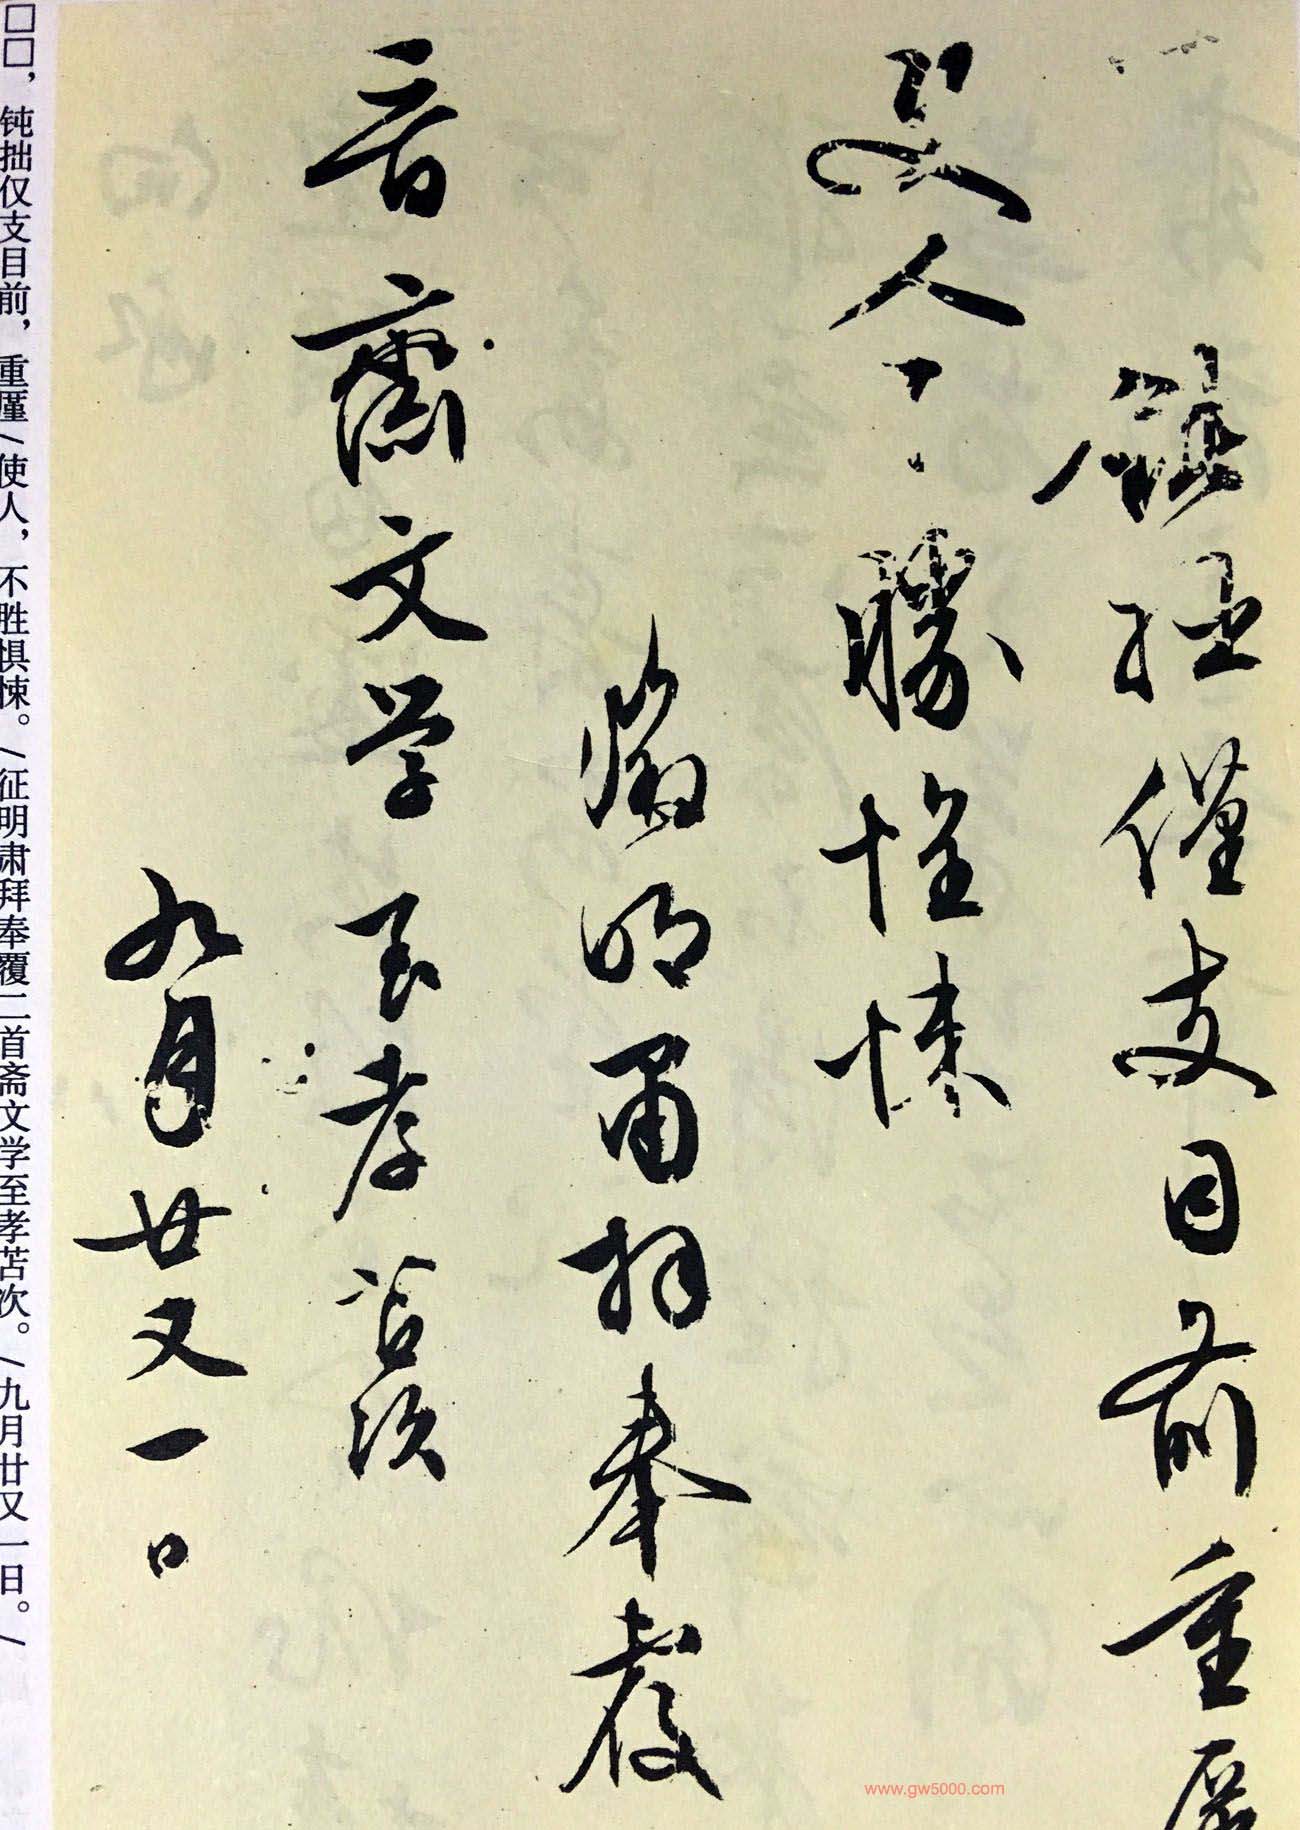 鈍拙僅支目前重
使人不勝惶悚
徵明肅拜奉覆
二首齋文學至孝苫次
九月廿又一日
□□，钝拙仅支目前，重厪/使人，不胜惧悚。/征明肃拜奉覆二首斋文学至孝苫次。/九月廿又一日。/
www.gw5000.com